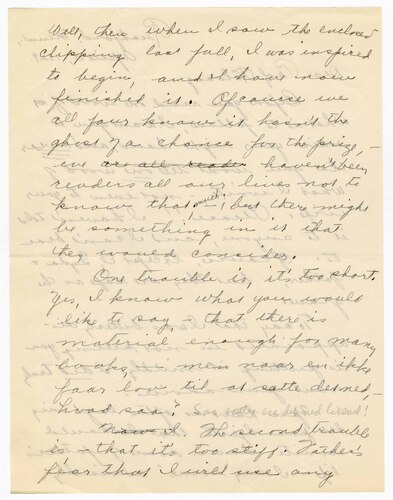 Well, then when I saw the enclosed
clipping last fall, I was inspired
to begin, and I have now
finished it. Of course we
all four know it hasn't the
ghost of a chance for the prize, -
- we are all reade haven't been
readers all our lives not to
know that much! - but there might
be something in it that
they would consider.
One trouble is, it's too short.
Yes, I know what you would
like to say, that there is
material enough for many
books, - men naar en ikke
faar lov til at sætte det ned, -
hvad saa?
Now I. The second trouble
is - that it's too stiff. Father's
fear that I will use any